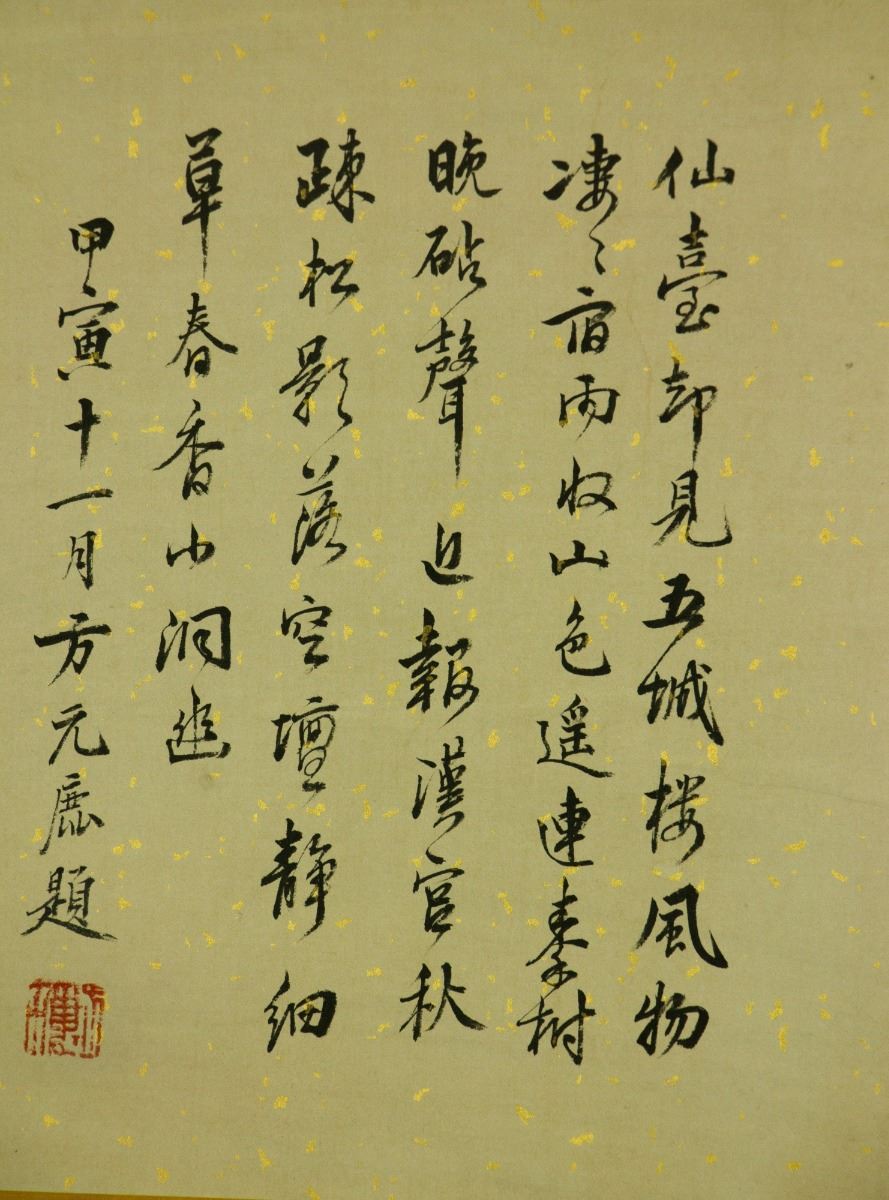 仙臺却見五城楼風物
凄〻宿雨收山色遥連秦樹
晚砧聲近報漢宮秋
疎松影落空壇静細
草春香小洞幽
甲寅十一月方元鹿題